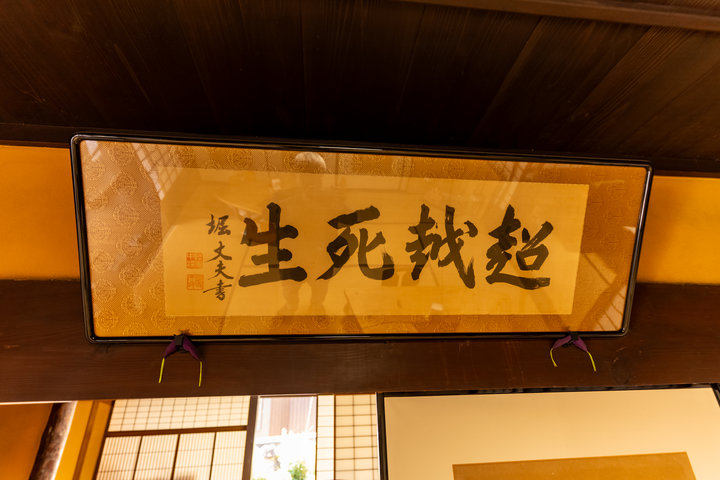 超越死生
堀丈夫書